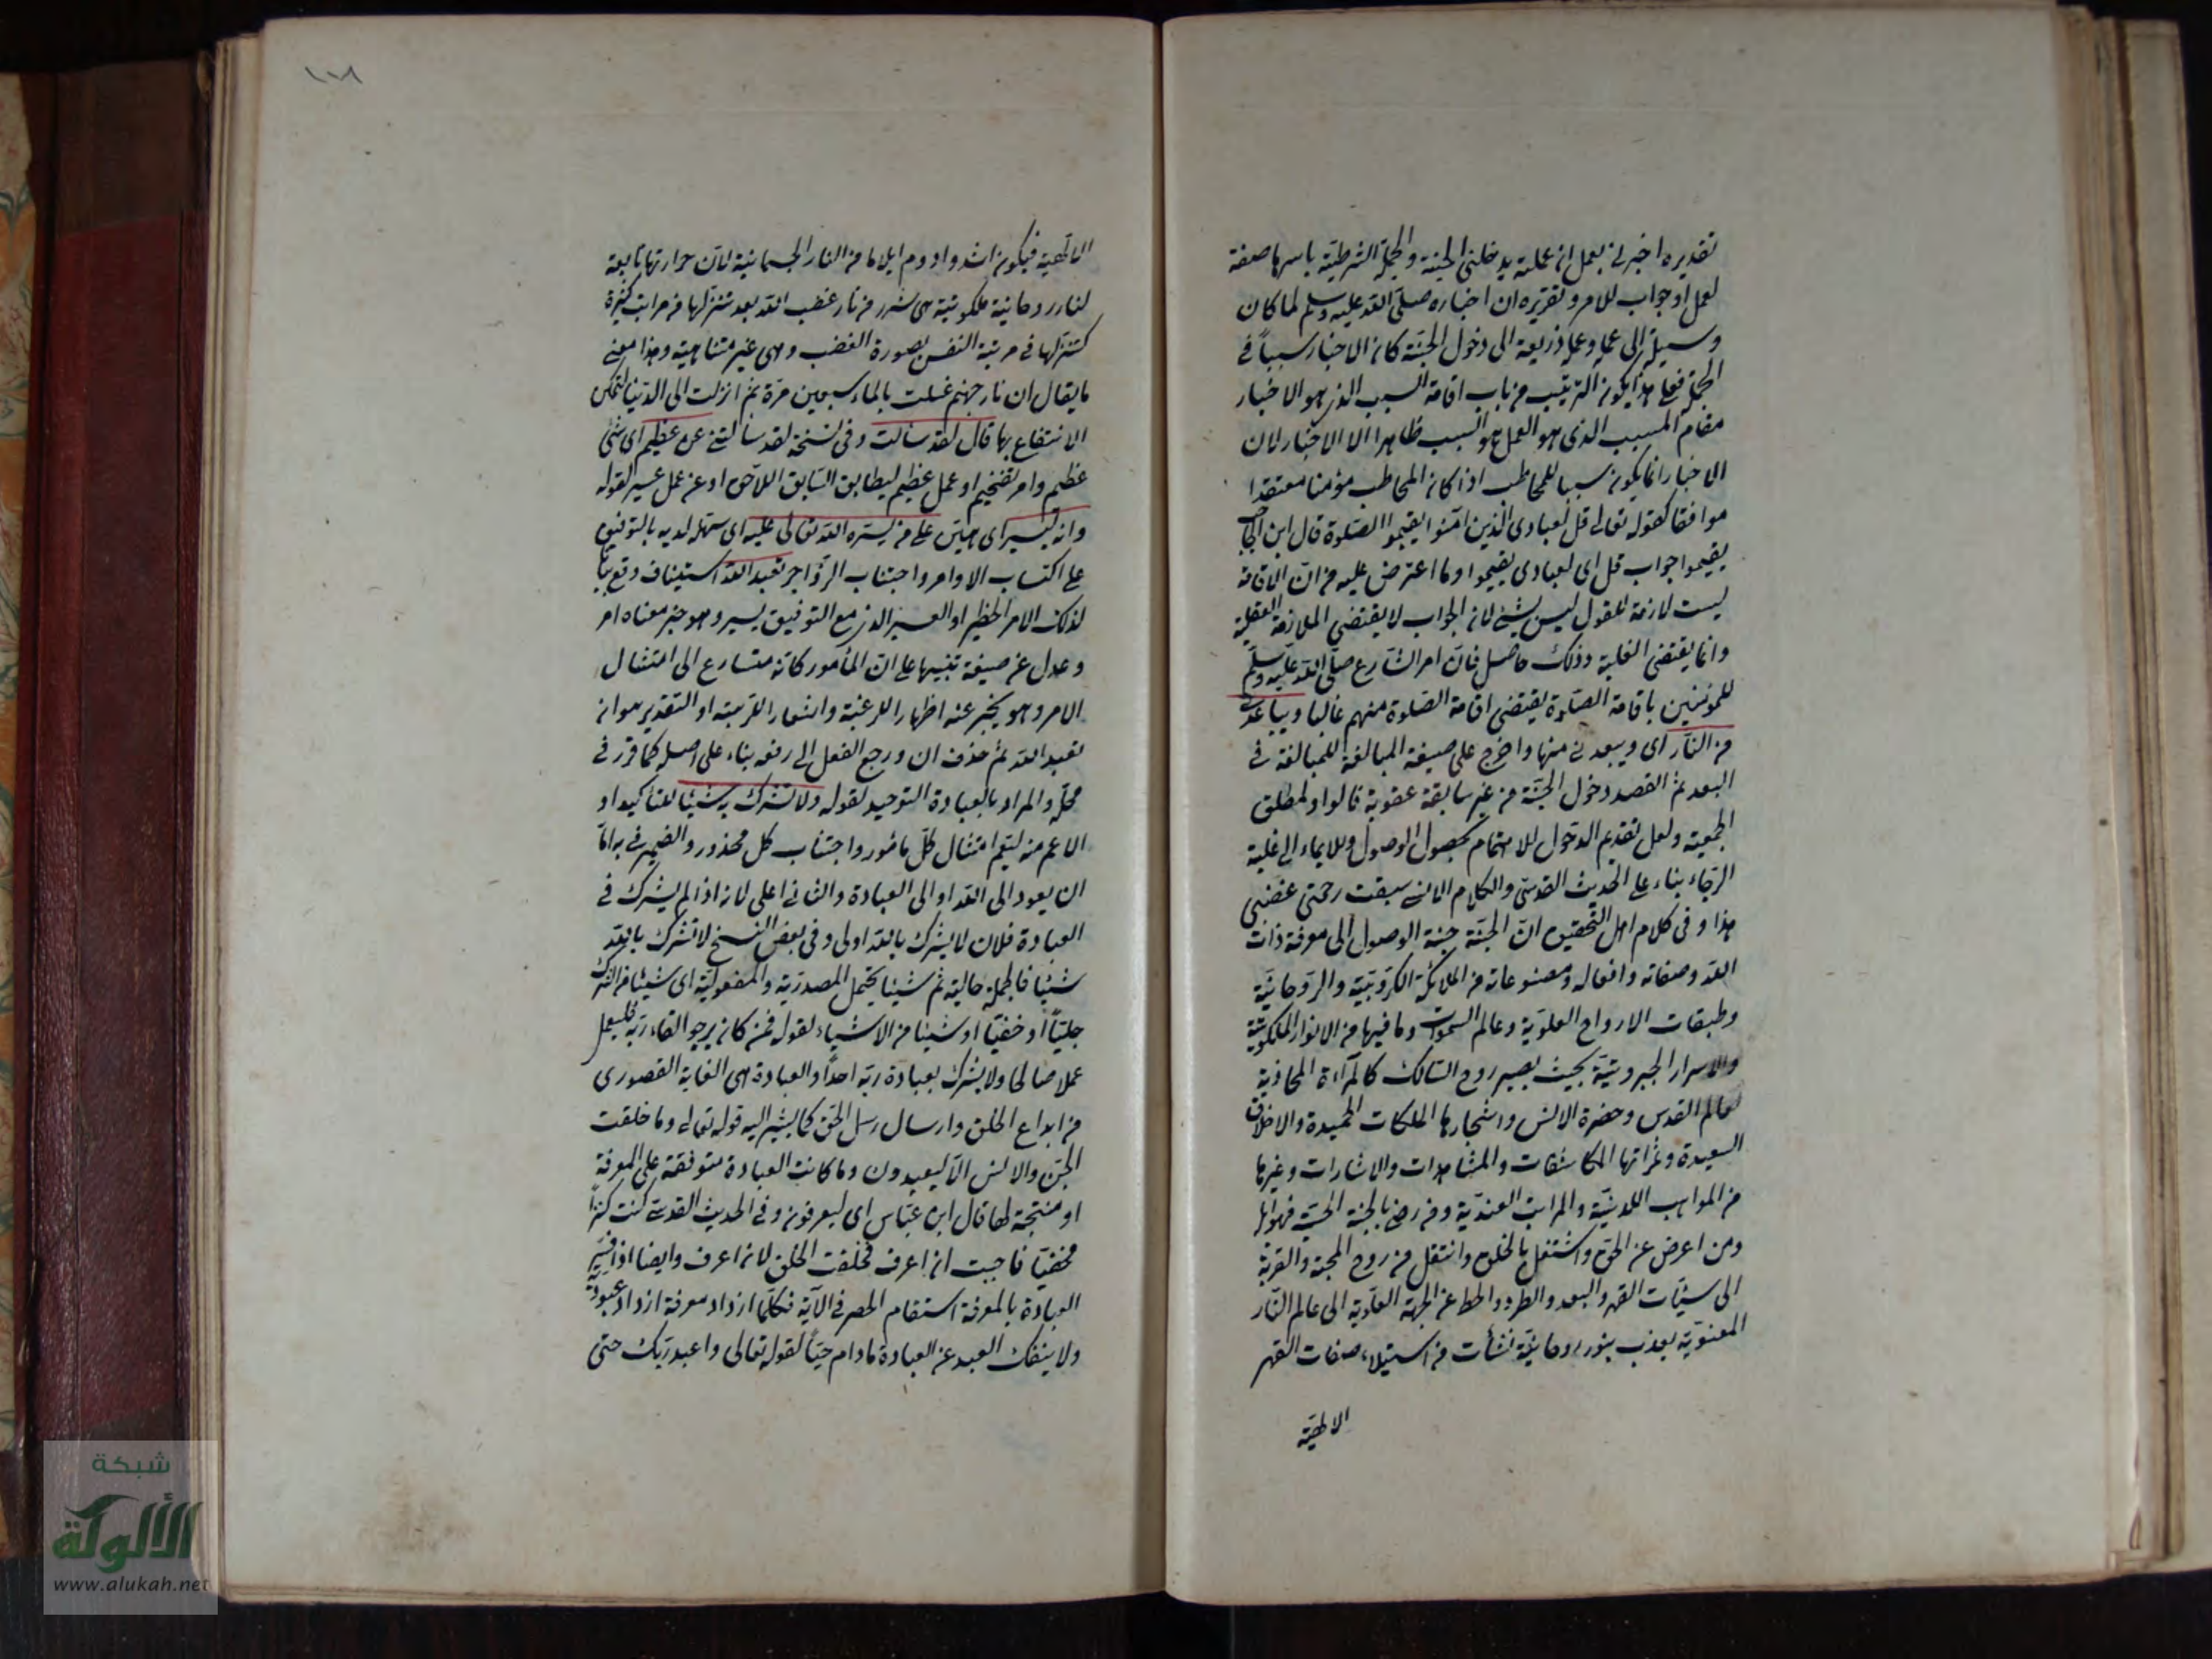 تقديره اخبرني بعمل ان عملته يدخلني الجنة والجملة الشرطية باسرها صفة
لعمل او جواب للامر وتقريره ان اخباره صلى الله عليه وسلم لما كان
وسيلة الى عمله وعمله ذريعة الى دخول الجنة كان الاخبار سببا في
الجملة فعلى هذا يكون الترتيب من باب اقامة السبب الذي هو الاخبار
مقام المسبب الذي هو العمل هو السبب ظاهرا الا الاخبار لان
الاخبار انما يكون سببا للمخاطب اذا كان المخاطب مؤمنا معتقدا
موافقا كقوله تعالى قل لعبادي الذين امنوا يقيموا الصلوة قال ابن الحاجب
يقيموا جواب قل اي لعبادي يقيموا وما اعترض عليه من ان الاقامة
ليست لازمة للقول ليس بشيء لان الجواب لا يقتضي الملازمة العقلية
وانما يقتضي الغلبة وذلك حاصل فان امر الشارع صلى الله عليه وسلم
للمؤمنين باقامة الصلوة يقتضي اقامة الصلوة منهم غالبا ويباعدني
من النار اي ويبعدني منها واخرج على صيغة المبالغة للمبالغة في
البعد ثم القصد دخول الجنة من غير سابقة عقوبة فالواو لمطلق
الجمعية ولعل تقديم الدخول للاهتمام بحصول الوصول وللايماء الى غلبة
الرجاء بناء على الحديث القدسي والكلام الانسي سبقت رحمتي غضبي
هذا وفي كلام اهل التحقيق ان الجنة جنة الوصول الى معرفة ذات
الله وصفاته وافعاله ومصنوعاته من الملائكة الكروبية والروحانية
وطبقات الارواح العلوية وعالم السموات وما فيها من الانوار الملكوتية
والاسرار الجبروتية بحيث يصير روح السالك كالمرآة المحاذية
لعالم القدس وحضرة الانس واشجارها الملكات الحميدة والاخلاق
السعيدة وثمراتها المكاشفات والمشاهدات والاشارات وغيرها
من المواهب اللدنية والمراتب العندية ومن رضي بالجنة الحسية فهو ابله
ومن اعرض عن الحق واشتغل بالخلق وانتقل من روح المحبة والقربة
الى سيئات القهر والبعد والطرد وانحط عن الجهة العلوية الى عالم النار
المعنوية يعذب بنور روحانية نشأت من استيلاء صفات القهر
الالهية
١٧٨
الالهية فيكون اشد وادوم ايلاما من النار الجسمانية لان حرارتها تابعة
لنار روحانية ملكوتية هي شرر من نار غضب الله بعد تنزلها في مراتب كثيرة
كتنزلها في مرتبة النفس بصورة الغضب وهي غير متناهية وهذا معنى
ما يقال ان نار جهنم غسلت بالماء سبعين مرة ثم انزلت الى الدنيا لتمكن
الانتفاع بها قال لقد سألت وفي نسخة لقد سألتني عن عظيم اي شيء
عظيم وامر تفخيم او عمل عظيم ليطابق السابق اللاحق او عن عمل عسير لقوله
وانه ليسير اي هين على من يسره الله تعالى عليه اي سهله لديه بالتوفيق
على اكتساب الاوامر واجتناب الزواجر تعبد الله استيناف وقع بيانا
لذلك الامر الخطير او العسير الذي مع التوفيق يسير وهو خبر معناه امر
وعدل عن صيغة تنبيها على ان المأمور كانه متسارع الى امتثال
الامر وهو يخبر عنه اظهارا للرغبة واشعارا للرتبة او التقدير هو ان
تعبد الله ثم حذف ان ورجع الفعل الى رفعه بناء على اصله كما قرر في
محله والمراد بالعبادة التوحيد لقوله ولا تشرك به شيئا للتأكيد او
الاعم منه ليعم امتثال كل مأمور واجتناب كل محذور والضمير في به اما
ان يعود الى الله او الى العبادة والثاني اعلى لانه اذا لم يشرك في
العبادة فلان لا يشرك بالله اولى وفي بعض النسخ لا تشرك بالله
شيئا فالجملة حالية ثم شيئا يحتمل المصدرية والمفعولية اي شيئا من الشرك
جليا او خفيا او شيئا من الاشياء لقوله فمن كان يرجو القاء ربه فليعمل
عملا صالحا ولا يشرك بعبادة ربه احدا والعبادة هي الغاية القصوى
من ابداع الخلق وارسال رسل الحق كما يشير اليه قوله تعالى وما خلقت
الجن والانس الا ليعبدون وما كانت العبادة متوقفة على المعرفة
او منتجة لها قال ابن عباس اي ليعرفون وفي الحديث القدسي كنت كنزا
مخفيا فاحببت ان اعرف فخلقت الخلق لان اعرف وايضا اذا فسر
العبادة بالمعرفة استقام الحصر في الآية فكلما ازداد معرفة ازداد عبودية
ولا ينفك العبد عن العبادة ما دام حيا لقوله تعالى واعبد ربك حتى
شبكة
الألوكة
www.alukah.net